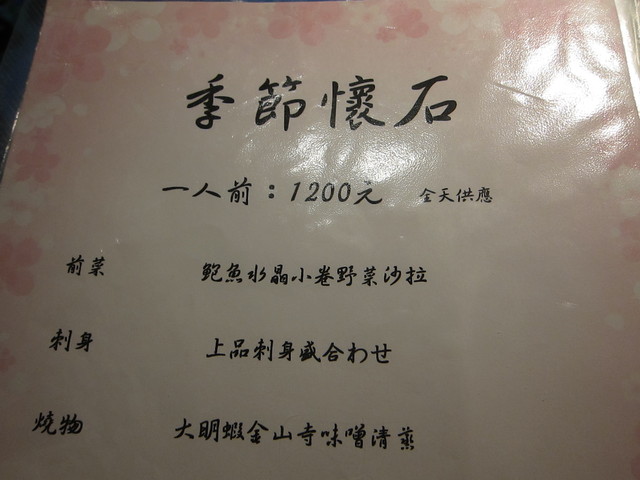 季節懷石
一人前：1200元 全天供應
前菜 鮑魚水晶小卷野菜沙拉
刺身 上品刺身盛合わせ
燒物 大明蝦金山寺味噌清蒸